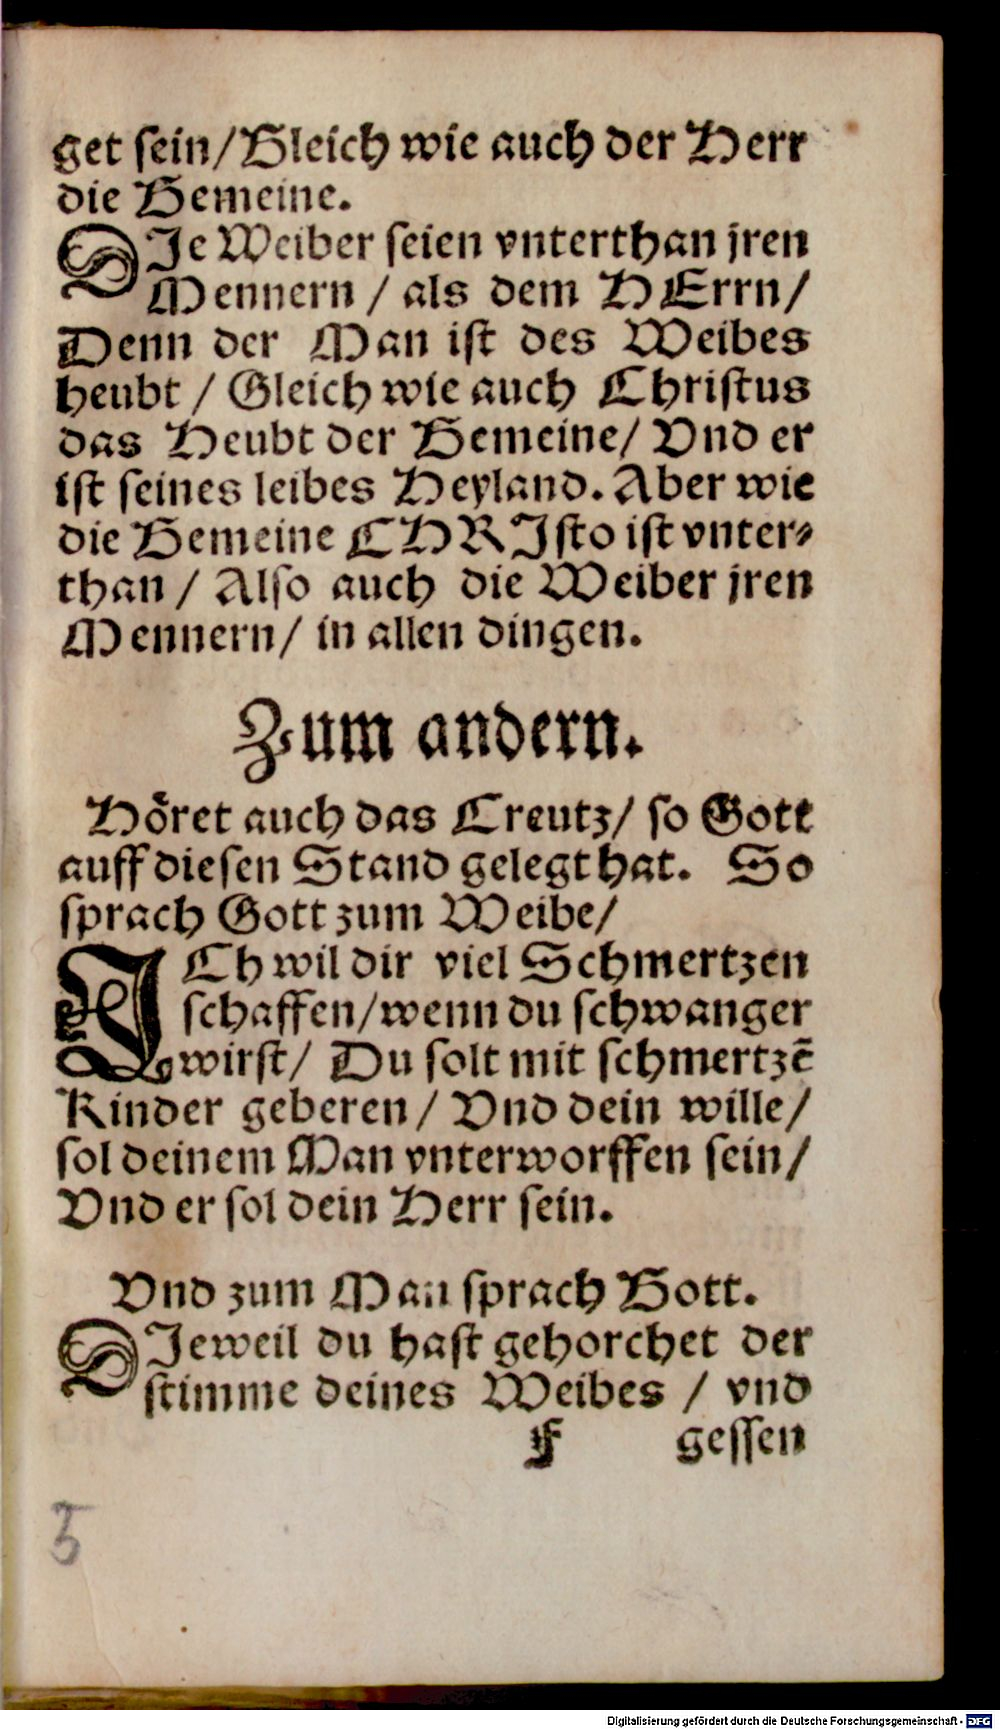 get sein/Gleich wie auch der Herr
die Gemeine.
DJe Weiber seien vnterthan jren
Mennern / als dem HErrn/
Denn der Man ist des Weibes
heubt / Gleich wie auch Christus
das Heubt der Gemeine/ Vnd er
ist seines leibes Heyland. Aber wie
die Gemeine CHRJsto ist vnter⸗
than / Also auch die Weiber jren
Mennern/ in allen dingen.
Zum andern.
Höret auch das Creutz/ so Gott
auff diesen Stand gelegt hat. So
sprach Gott zum Weibe/
JCh wil dir viel Schmertzen
schaffen/wenn du schwanger
wirst/ Du solt mit schmertzē
Kinder geberen/ Vnd dein wille/
sol deinem Man vnterworffen sein/
Vnd er sol dein Herr sein.
Vnd zum Man sprach Gott.
DJeweil du hast gehorchet der
stimme deines Weibes / vnd
F gessen
5
Digitalisierung gefördert durch die Deutsche Forschungsgemeinschaft - DFG